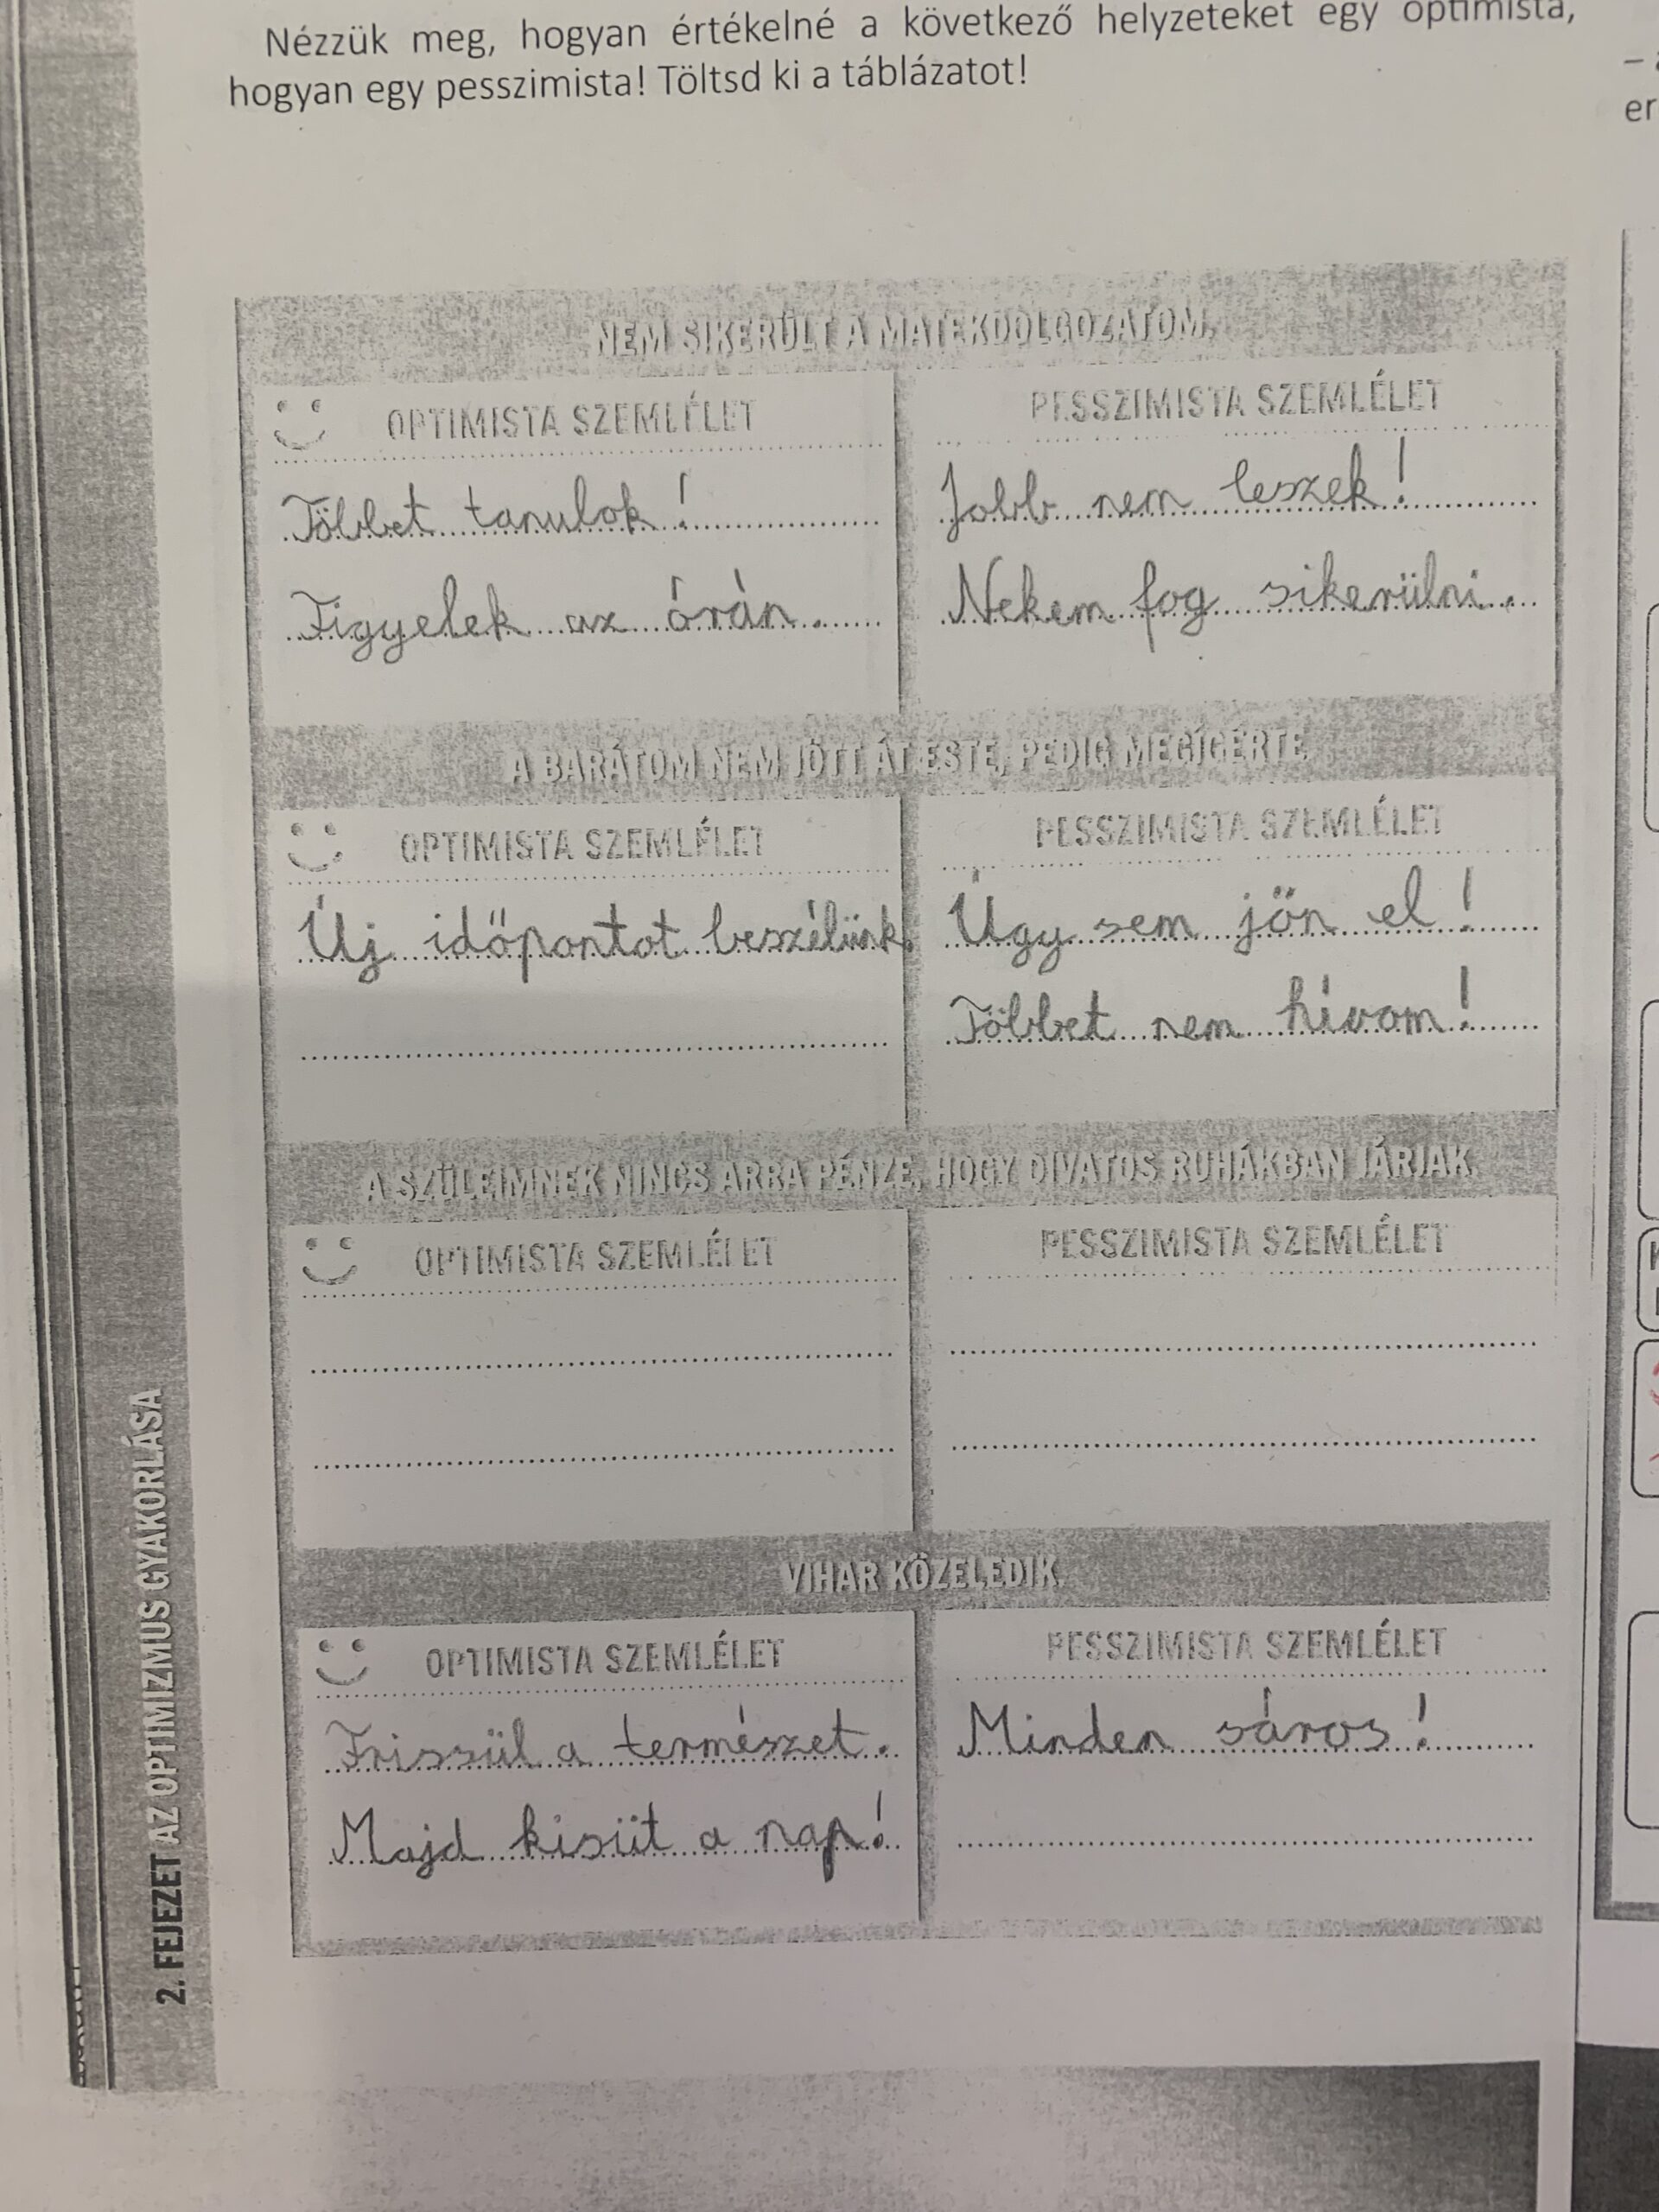 Nézzük meg, hogyan értékelné a következő helyzeteket egy optimista,
hogyan egy pesszimista! Töltsd ki a táblázatot!
– 
er
NEM SIKERÜLT A MATEKDOLGOZATOM.
OPTIMISTA SZEMLÉLET
PESSZIMISTA SZEMLÉLET
Többet tanulok!
Jobb nem leszek!
Figyelek az órán.
Nekem fog sikerülni.
A BARÁTOM NEM JÖTT ÁT ESTE, PEDIG MEGÍGÉRTE.
OPTIMISTA SZEMLÉLET
PESSZIMISTA SZEMLÉLET
Új időpontot beszélünk.
Úgy sem jön el!
Többet nem hívom!
A SZÜLEIMNEK NINCS ARRA PÉNZE, HOGY DIVATOS RUHÁKBAN JÁRJAK.
OPTIMISTA SZEMLÉLET
PESSZIMISTA SZEMLÉLET
VIHAR KÖZELEDIK.
OPTIMISTA SZEMLÉLET
PESSZIMISTA SZEMLÉLET
Frissül a természet.
Minden sáros!
Majd kisüt a nap!
2. FEJEZET AZ OPTIMIZMUS GYAKORLÁSA